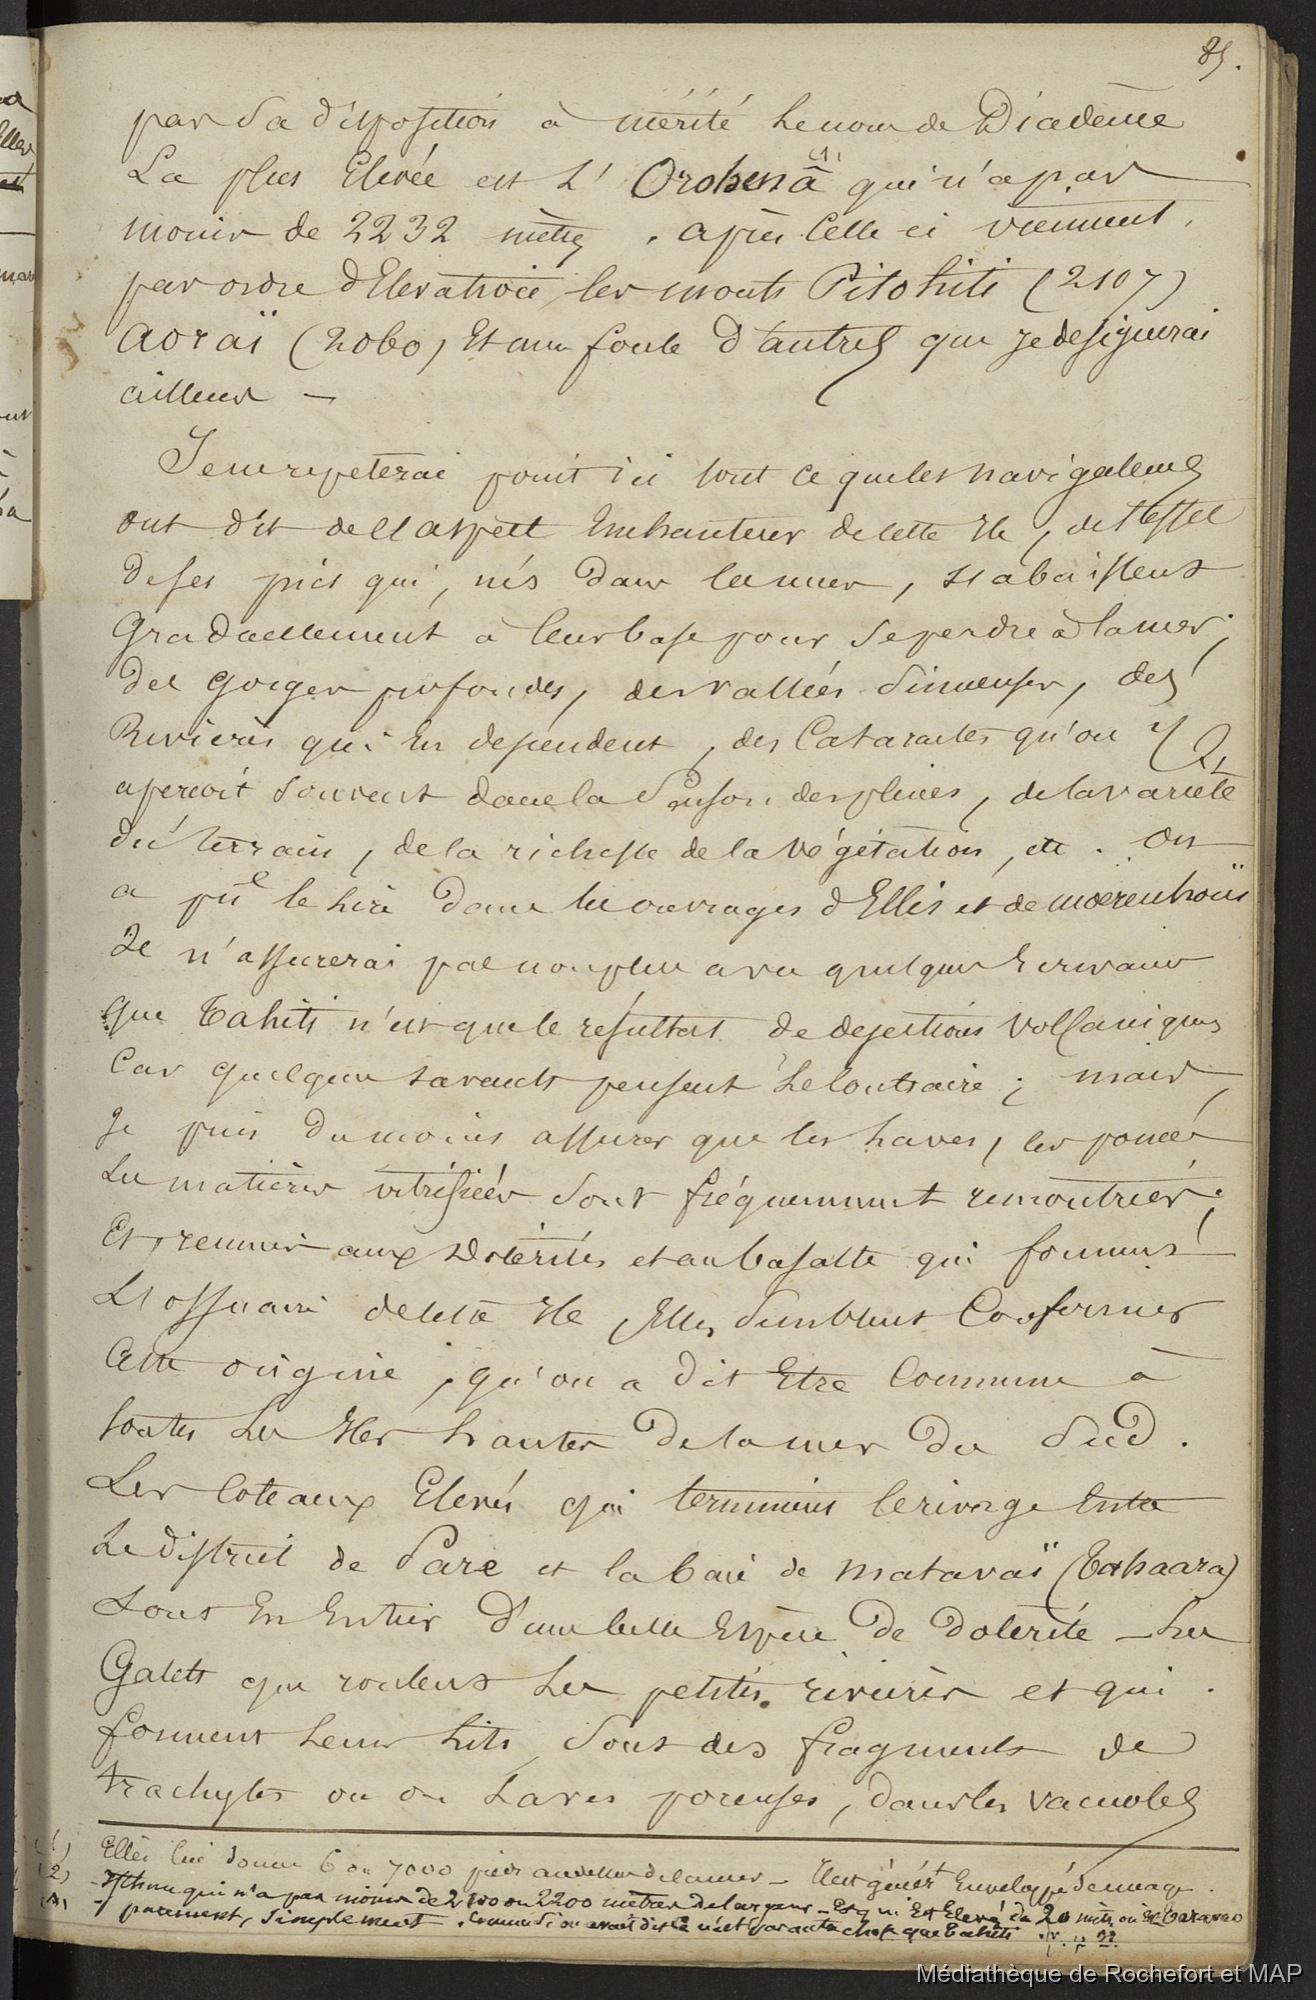 85.
par sa disposition à mérité le nom de Diadème
La plus Elevée est l' Orohena (1) qui n'a pas
moins de 2232 mètres . après celle ci viennent,
par ordre d'Elevation les monts Pitohiti (2107)
aoraï (2060) Et une foule d'autres que je designerai
ailleurs —
Je ne repeterai point ici tout ce que les navigateurs
ont dit de l'aspect Enchanteur de cette Ile, de l'effet
de ses pics qui, nés dans les nues, s'abaissent
Graduellement à leur base pour se perdre à la mer;
des Gorges profondes, des vallées sinueuses, des
Rivieres qui en dependent, des Cataractes qu'on y
apercoit souvent dans la saison des pluies, de la variété
du terrain, de la richesse de la végétation, etc. On
a pu le lire dans les ouvrages d'Ellis et de moerenhoüs
Je n'assurerai pas non plus avec quelques Ecrivains
que Tahiti n'est que le résultat de dejections volcaniques
Car quelques savants pensent le contraire; mais,
Je puis du moins assurer que les laves, les ponces
les matières vitrifiées sont fréquemment rencontrées;
Et, reunies aux dolerites et au basalte qui forment
L'ossuaire de cette Ile, Elles semblent Confirmer
Cette origine, qu'on a dit Etre Commune à
toutes les Iles hautes de la mer du Sud.
Les Coteaux Elevés qui terminent le rivage Entre
Le district de Pare et la baie de mataraï (Tahaara)
Sont En Entier d'une belle Espèce de dolérite — les
Galets que roulent les petites rivières et qui
forment leurs lits sont des fragments de
trachytes ou de Laves poreuses, dans les vacuoles
(1) Ellis lui donne 6 ou 7000 pieds au dessus de la mer — Il est génért Enveloppé de nuages.
(2) — Isthme qui n'a pas moins de 2100 ou 2200 mètres de largeur — Et qui Est Elevé de 20 mètr. où Est Taravao
purement, simplement. Comme si on avait dit Ce n'est pas autre chose que Tahiti